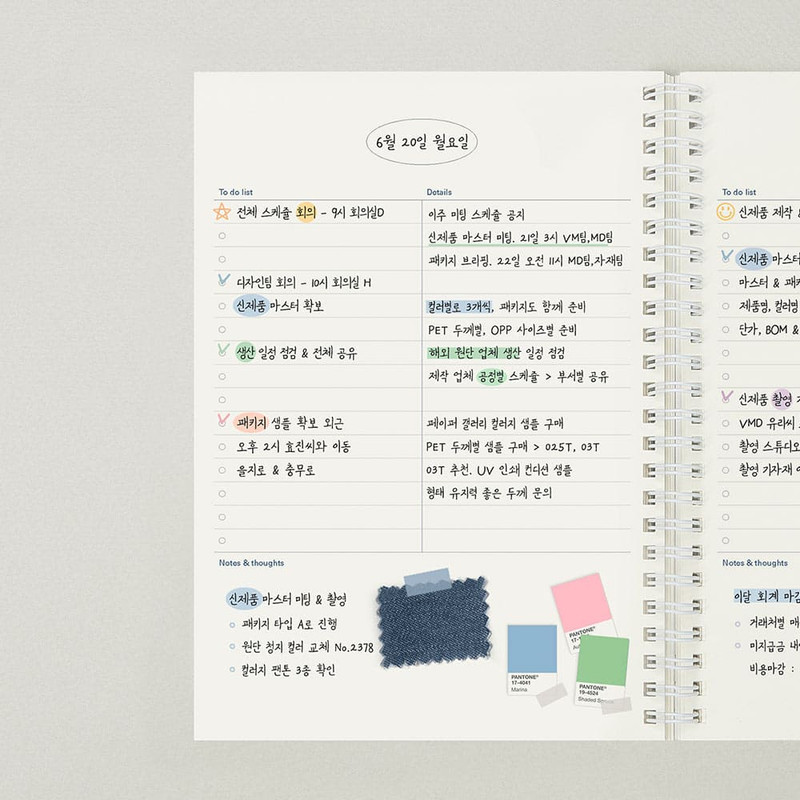 6월 20일 월요일
To do list
Details
전체 스케쥴 회의 - 9시 회의실D
이주 미팅 스케쥴 공지
신제품 마스터 미팅. 21일 3시 VM팀,MD팀
패키지 브리핑. 22일 오전 11시 MD팀,자재팀
디자인팀 회의 - 10시 회의실 H
신제품 마스터 확보
컬러별로 3개씩, 패키지도 함께 준비
PET 두께별, OPP 사이즈별 준비
생산 일정 점검 & 전체 공유
해외 원단 업체 생산 일정 점검
제작 업체 공정별 스케쥴 > 부서별 공유
패키지 샘플 확보 외근
페이퍼 갤러리 컬러지 샘플 구매
오후 2시 효진씨와 이동
PET 두께별 샘플 구매 > 025T, 03T
을지로 & 충무로
03T 추천. UV 인쇄 컨디션 샘플
형태 유지력 좋은 두께 문의
Notes & thoughts
신제품 마스터 미팅 & 촬영
패키지 타입 A로 진행
원단 청지 컬러 교체 No.2378
컬러지 팬톤 3종 확인
PANTONE®
PANTONE®
17-4041
Marina
PANTONE®
19-4524
Shaded
To do list
신제품 제작
신제품 마스터
마스터 & 패키
제품명, 컬러명
단가, BOM &
신제품 촬영
VMD 유라씨
촬영 스튜디오
촬영 기자재
Notes & thoughts
이달 회계 마감
거래처별
미지급금
비용마감 :